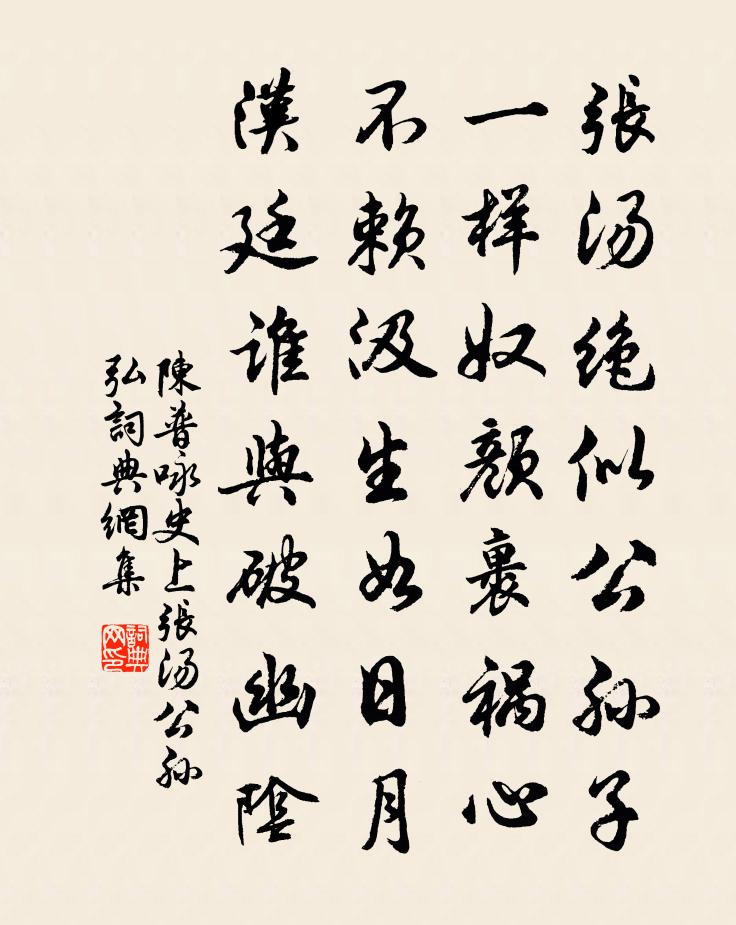 張湯絶似公孫子
一样奴顔裹禍心
不賴汲生如日月
漢廷誰與破幽陰
陳普咏史上張湯公孫
弘詞典網集
詞典
网印